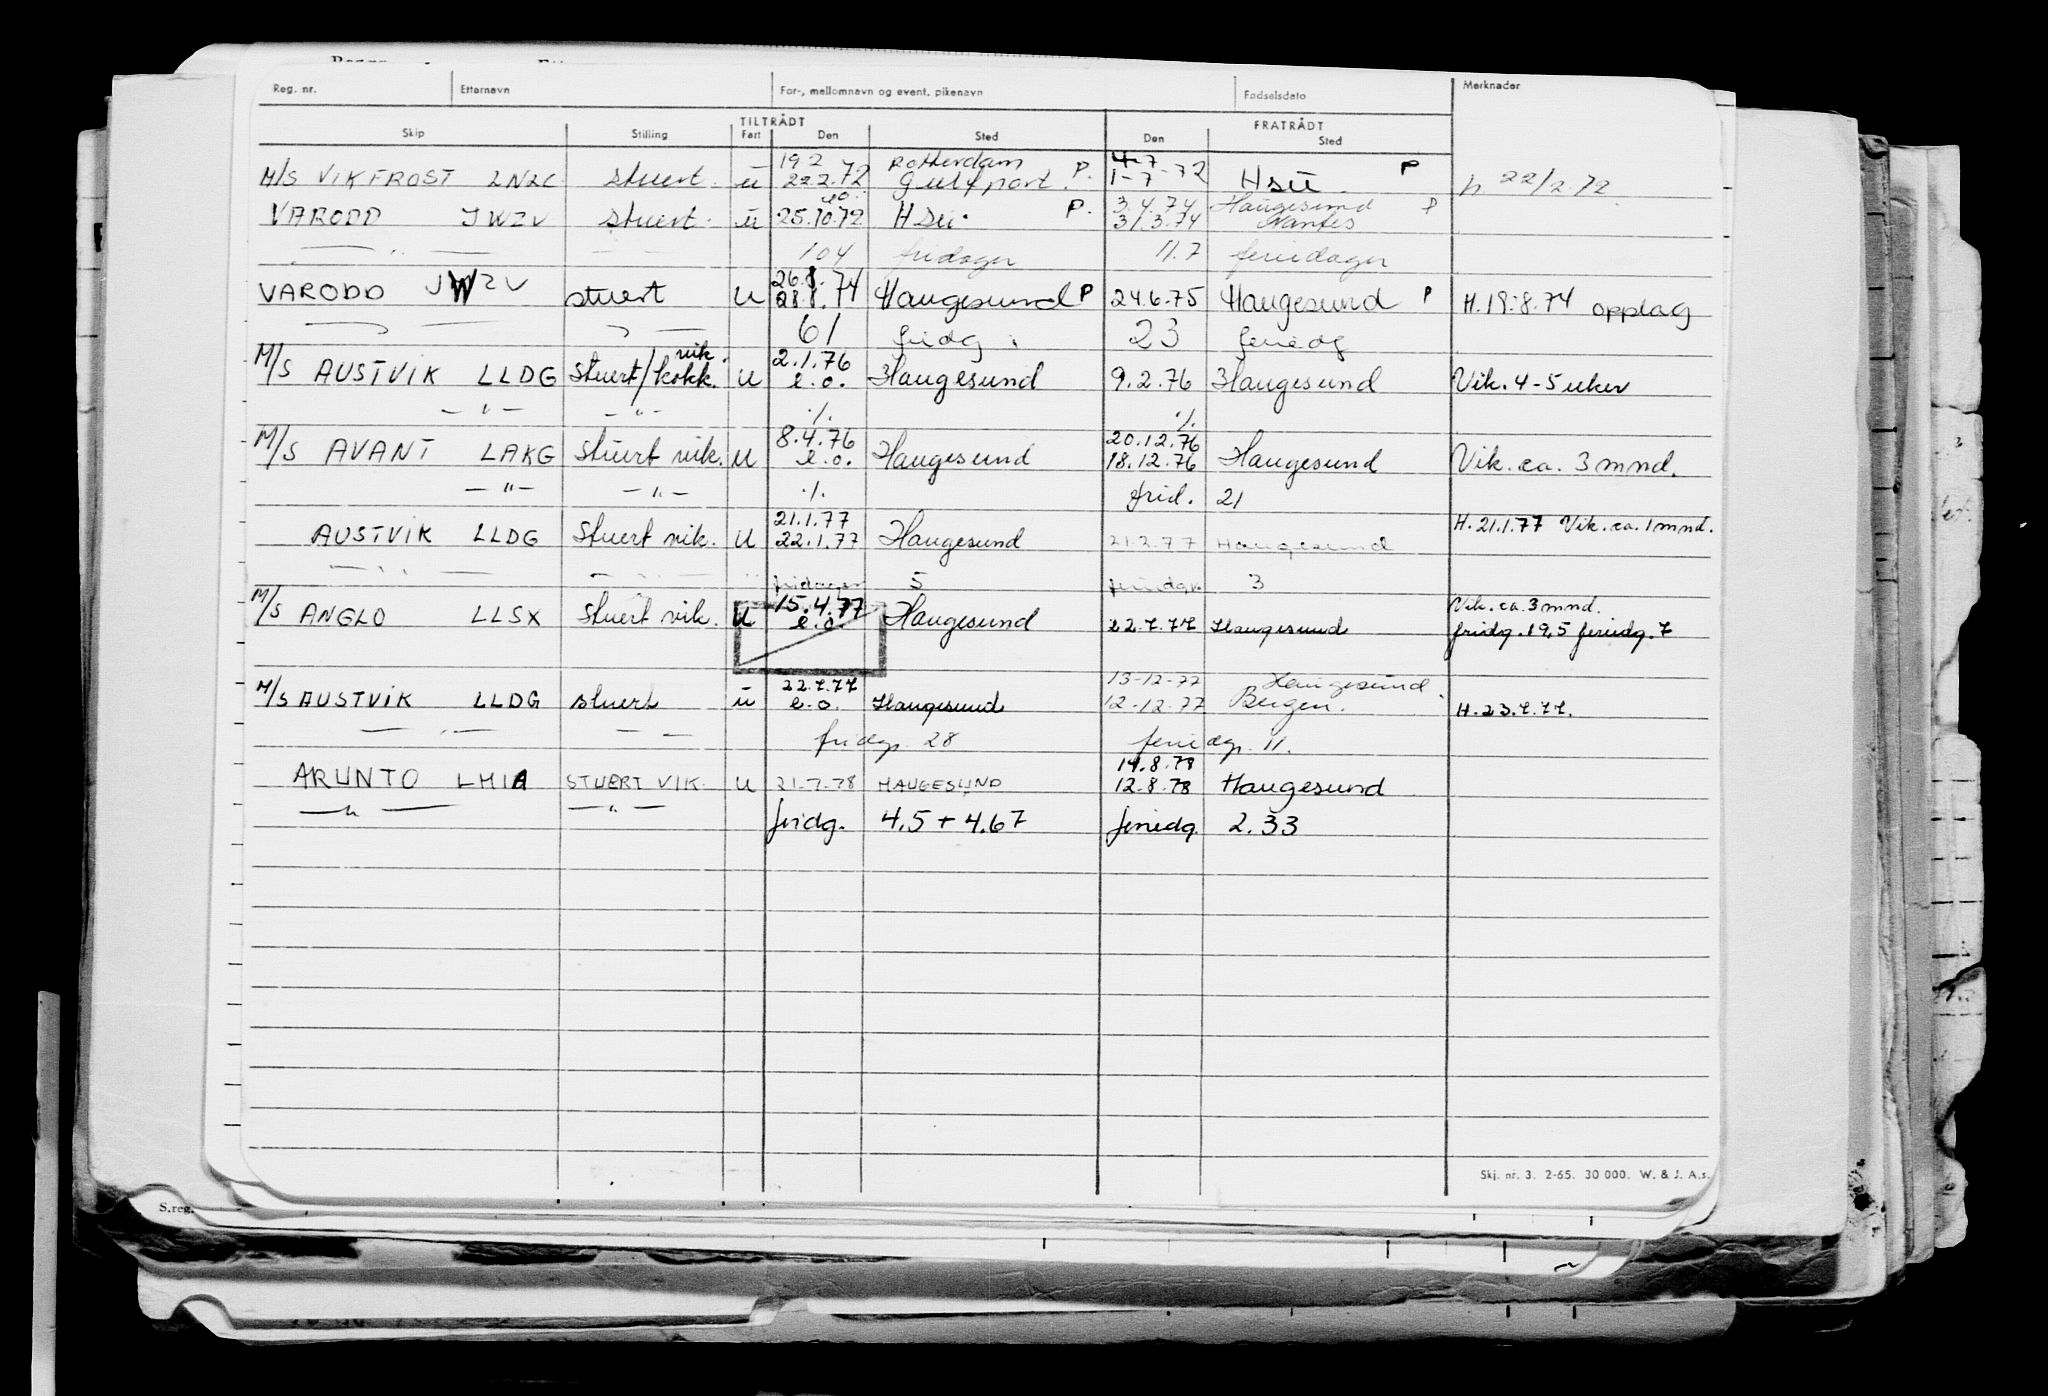 Reg. nr. Etternavn For-, mellomnavn og event. pikenavn Fødselsdato Merknader
TILTRÅDT FRATRÅDT
Skip Stilling Ført Den Sted Den Sted
19 2 Rotterdam 4-7
M/S VIKFROST LNLC stuert. ū 22 2.72 Gulfport P. 1-7-72 Hsū P h 22/2.72
e.o. 3.4.74 Haugesund P
VARODD JWZV stuert. ū 25.10.72 Hsū. P. 31.3.74 Nantes
— " — 104 fridager 11.7 feriedager
26.8.
VARODD JWZV stuert u 28.8.74 Haugesund P 24.6.75 Haugesund P H.19.8.74 opplag
— " — 61 fridg. 23 feriedg
vik. 2.1.76
M/S AUSTVIK LLDG Stuert/kokk. u e.o. Haugesund 9.2.76 Haugesund Vik. 4-5 uker
— " — — " — ./. ./.
8.4.76 20.12.76
M/S AVANT LAKG Stuert vik. u e.o. Haugesund 18.12.76 Haugesund Vik. ca. 3 mnd.
— " — — " — ./. frid. 21
21.1.77 H. 21.1.77 Vik. ca. 1 mnd.
AUSTVIK LLDG Stuert vik. u 22.1.77 Haugesund 21.2.77 Haugesund
— " — fridager 5 feriedgr. 3
15.4.77 Vik. ca. 3 mnd.
M/S ANGLO LLSX Stuert vik. u e.o. Haugesund 22.7.77 Haugesund fridg. 19,5 feriedg. 7
22.7.77 13-12-77 Haugesund
M/S AUSTVIK LLDG stuert ū e.o. Haugesund 12-12.77 Bergen. H. 23.7.77.
— " — — — fridg. 28 feriedg. 11.
14.8.78
ARUNTO LMIA STUERT VIK. u 21-7-78 HAUGESUND 12.8.78 Haugesund
— " — — " — fridg. 4,5 + 4.67 feriedg. 2.33
Skj. nr. 3. 2-65. 30 000. W. & J. A.s.
S.reg.